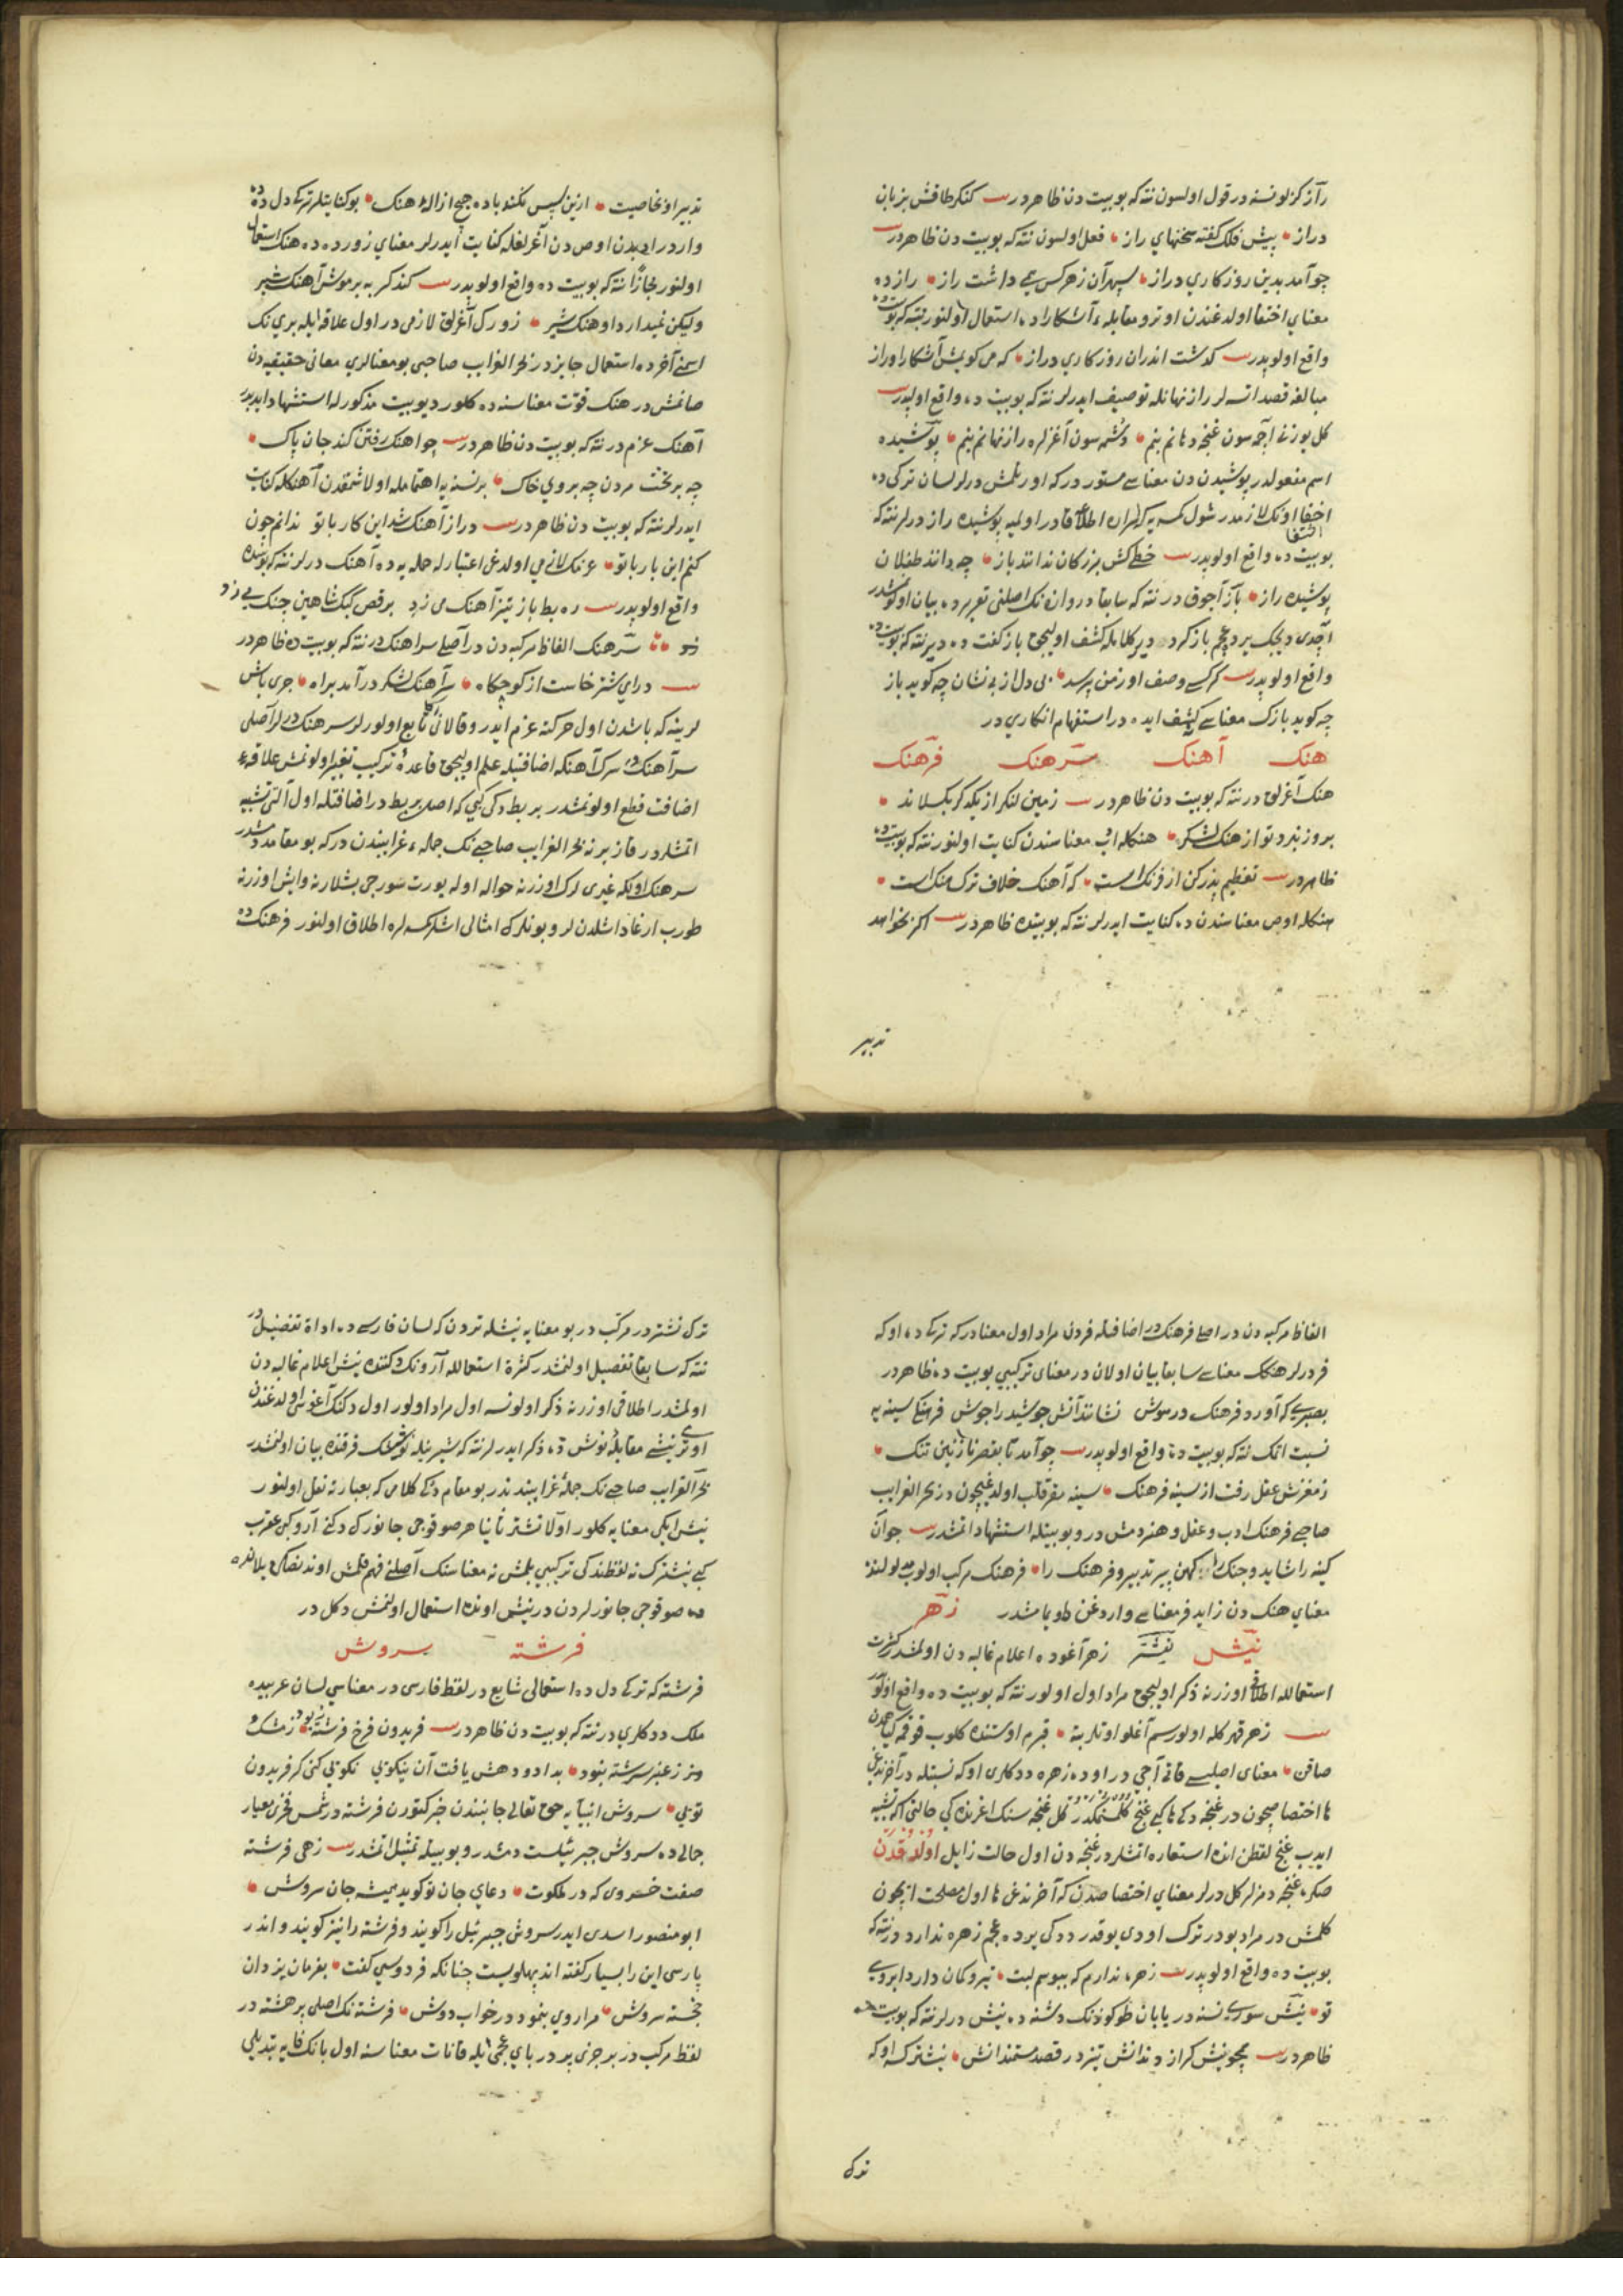 راز کزلو نسنه در قول اولسون نته که بو بیت دن ظاهردر کنکر طاقش بزبان
دراز پیش فلک کفته سخنهای راز فعل اولسون نته که بو بیت دن ظاهردر
چو آمد بدین روزکاری دراز سپهر آن زهر کس همی داشت راز رازده
معنای اختفا اولدغندن اوترو مقابله آشکاراده استعمال اولنور نته که بو بیت ده
واقع اولوپدر کذشت اندران روزکاری دراز که من کویش آشکارا و راز
مبالغه قصد اتسه لر راز نهانله توصیف ایدرلر نته که بو بیت ده واقع اولپدر
کل یوزن آچه سون غنچه دهانم بنم دشمه سون آغزلره راز نهانم بنم پوشیده
اسم مفعولدر پوشیدن دن معناسی مستوردر که اورتلمش درلر لسان ترکی ده
اختفا اونک لازمدر شول کمسه یه که
بو بیت ده واقع اولوپدر خطی کش بزرکان ندانند باز چه دانند طفلان
پوشیده راز باز آچوق در نته که سابقا دروازه نک اصلنی تقریرده بیان اولنمشدر
واقع اولوپدر کر کسی وصف او زمن پرسد بی دل از بی نشان چه کوید باز
چه کوید بازک معناسی کشف ایده در استفهام انکاری در
هنک آهنک سرهنک فرهنک
هنک آغرلق در نته که بو بیت دن ظاهردر زمین لنکر از یکدکر بکسلاند
بروز نبرد تو از هنک لشکر هنکله اب معناسندن کنایت اولنور نته که بو بیت ده
ظاهردر تعظیم پذر کن از فرنک است که آهنک خلاف ترک هنک است
هنکله اوص معناسندن ده کنایت ایدرلر نته که بو بیتده ظاهردر اکر نخواهد
تدبیر
تدبیر او خاصیت ازین پس نکند باده هیچ ازاله هنک بو کنایتلر ترکی دل ده
واردر ادبدن اوص دن آغرلغله کنایت ایدرلر معنای زورده ده هنک استعمال
اولنور مجازا نته که بو بیت ده واقع اولوپدر کند کربه بر موش آهنک شیر
ولیکن نمیدارد او هنک شیر زورک آغرلق لازمی در اول علاقه ایله برینک
اسمی آخرده استعمال جایزدر بحر الغرایب صاحبی بو معنالری معانی حقیقیه دن
صانمش در هنک قوت معناسنه ده کلور دیو بیت مذکورله استشهاد ایدیر
آهنک عزم در نته که بو بیت دن ظاهردر چو آهنک رفتن کند جان پاک
چه بر تخت مردن چه بر روی خاک بر نسنه یه اهتمامله اولاشمقدن آهنکله کنایت
ایدرلر نته که بو بیت دن ظاهردر دراز آهنک شد این کار با تو ندانم چون
کنم این بار با تو عزمک لازمی اولدغی اعتبارله حمله یه ده آهنک درلر نته که بو بیتده
واقع اولوپدر ره بط باز تیز آهنک می زد برقص کبک شاهین چنک می زد
سرهنک الفاظ مرکبه دن در آصلی سراهنک در نته که بو بیت ده ظاهردر
درای شتر خاست از کوچکاه سر آهنک لشکر درآمد براه جری باش
لرینه که باشدن اول حرکته عزم ایدر و قالانی تابع اولور لر سرهنک درلر آصلی
سر آهنک در سرک آهنکه اضافتیله علم اولیجق قاعده ترکیب تغیر اولونمش علاقه
اضافت قطع اولونمشدر بربط دکی کبی که اصلی بر بط در اضافتله اول آلتی تشبیه
اتمشلردر قاز برنه بحر الغرایب صاحبی نک جمله غرایبندن در که بو مقامده دمشدر
سرهنک اویکه غیری لرک اوزرنه حواله اوله یورت سورجی باشلارنه و ایش اوزرنه
طورب ارغاد اشلدن لر و بونلرک امثالی اشلر کمسه لره اطلاق اولنور فرهنک ده
الفاظ مرکبه دن در اصلی فرهنک در اضافتله فردن مراد اول معنادر که ترکی ده اوکه
فر درلر هنکک معناسی سابقا بیان اولان در معنای ترکیبی بو بیت ده ظاهردر
بصبری که آورد فرهنک در هوش نشاند آتش جوشید را جوش فرهنکی سینه یه
نسبت اتمک نته که بو بیت ده واقع اولوپدر چو آمد تا بقصر نازنین تنک
زمغزش عقل رفت از سینه فرهنک سینه مقر قلب اولدغیچون در بحر الغرایب
صاحبی فرهنک ادب و عقل و هنر دمش در و بو بیتله استشهاد اتمشدر جوان
کینه را شاید و جنک را کهن پیر تدبیر و فرهنک را فرهنک مرکب اولوب مدلولنده
معنای هنک دن زاید فر معناسی واردغن طویمامشدر زهر
نیش نیشتر زهر آغوده اعلام غالبه دن اولمشدر کثرت
استعمالله اطلاق اوزرنه ذکر اولیجق مراد اول اولور نته که بو بیت ده واقع اولور
زهر قهر کله اولور سم آغلو اوتلر بته قبرم اوستنده کلوب قوقمه کیاهمدن
صاقن معنای اصلیسی قاتی آجی در اوده زهره ددکاری اوکه نسبتله در آخرندغی
ها اختصاصیچون در غنچه دکی ها کبی غنچ کلنمکدر کل غنچه سنک اغزندکی حالتی آکه تشبیه
ایدب غنچ لفظن انده استعاره اتمشلردر غنچه دن اول حالت زایل اولدقدن
صکره غنچه دمزلر کل درلر معنای اختصاصدن که آخرندغی ها اول مصلحت ایچون
کلمش در مراد بودر ترک اودی یوقدر ددکی یرده عجم زهره ندارد در نته که
بو بیت ده واقع اولوپدر زهره ندارم که ببوسم لبت تیر و کمان دارد ابروی
تو نیش سوری نسنه در یابان طوکوزنک دشنه ده نیش درلر نته که بو بیت ده
ظاهردر همچو نیش کراز دندانش تیز در قصد مستمندانش نیشتر که اوکه
ترکی
ترکی نشتردر مرکب در بو معنایه نیشله تردن که لسان فارسی ده اداة تفضیل در
نته که سابقا تفصیل اولنمشدر کثرة استعمالله آرونک دکنده نیش اعلام غالبه دن
اولمشدر اطلاقی اوزرنه ذکر اولونسه اول مراد اولور اول دکنک آغولی اولدغندن
اوترو نیشی مقابله نوش ده ذکر ایدرلر نته که شیرینله نوشک فرقنده بیان اولنمشدر
بحر الغرایب صاحبی نک جمله غرایبندندر بو مقام دکی کلامی که بعبارته نقل اولنور
نیش ایکی معنایه کلور اولا نشتر ثانیا هر صوقجی جانورک دکنی آرو کبی عقرب
کبی نیشترک نه لفظندکی ترکیبی بلمش نه معناسنک آصلنی فهم قلمش اوندن صکره
ده صوقوجی جانورلردن در نیش اونده استعمال اولنمش دکل در
فرشته سروش
فرشته که ترکی دل ده استعمالی شایع در لفظ فارسی در معناسی لسان عربیده
ملک ددکاری در نته که بو بیت دن ظاهردر فریدون فرخ فرشته نبود ز مشک و
ز عنبر سرشته نبود بداد و دهش یافت آن نیکوی تو نیکوی کن که فریدون
تویی سروش انبیایه حق تعالی جانبندن خبر کتورن فرشته در شمس فخری معیار
جمالی ده سروش جبرئیلست دمشدر و بو بیتله تمثیل اتمشدر زهی فرشته
صفت خسروی که در ملکوت دعای جان تو کوید همیشه جان سروش
ابو منصور اسدی ایدر سروش جبرئیل را کویند و فرشته را نیز کویند و اندر
پارسی این را بسیار کفته اند پهلویست چنانکه فردوسی کفت بفرمان یزدان
خجسته سروش مرا روی بنمود در خواب دوش فرشته نک اصلی پرهشته در
لفظ مرکب در بر جزئی پر در بای عجمی ایله قانات معناسنه اول بانک فایه تبدیلی